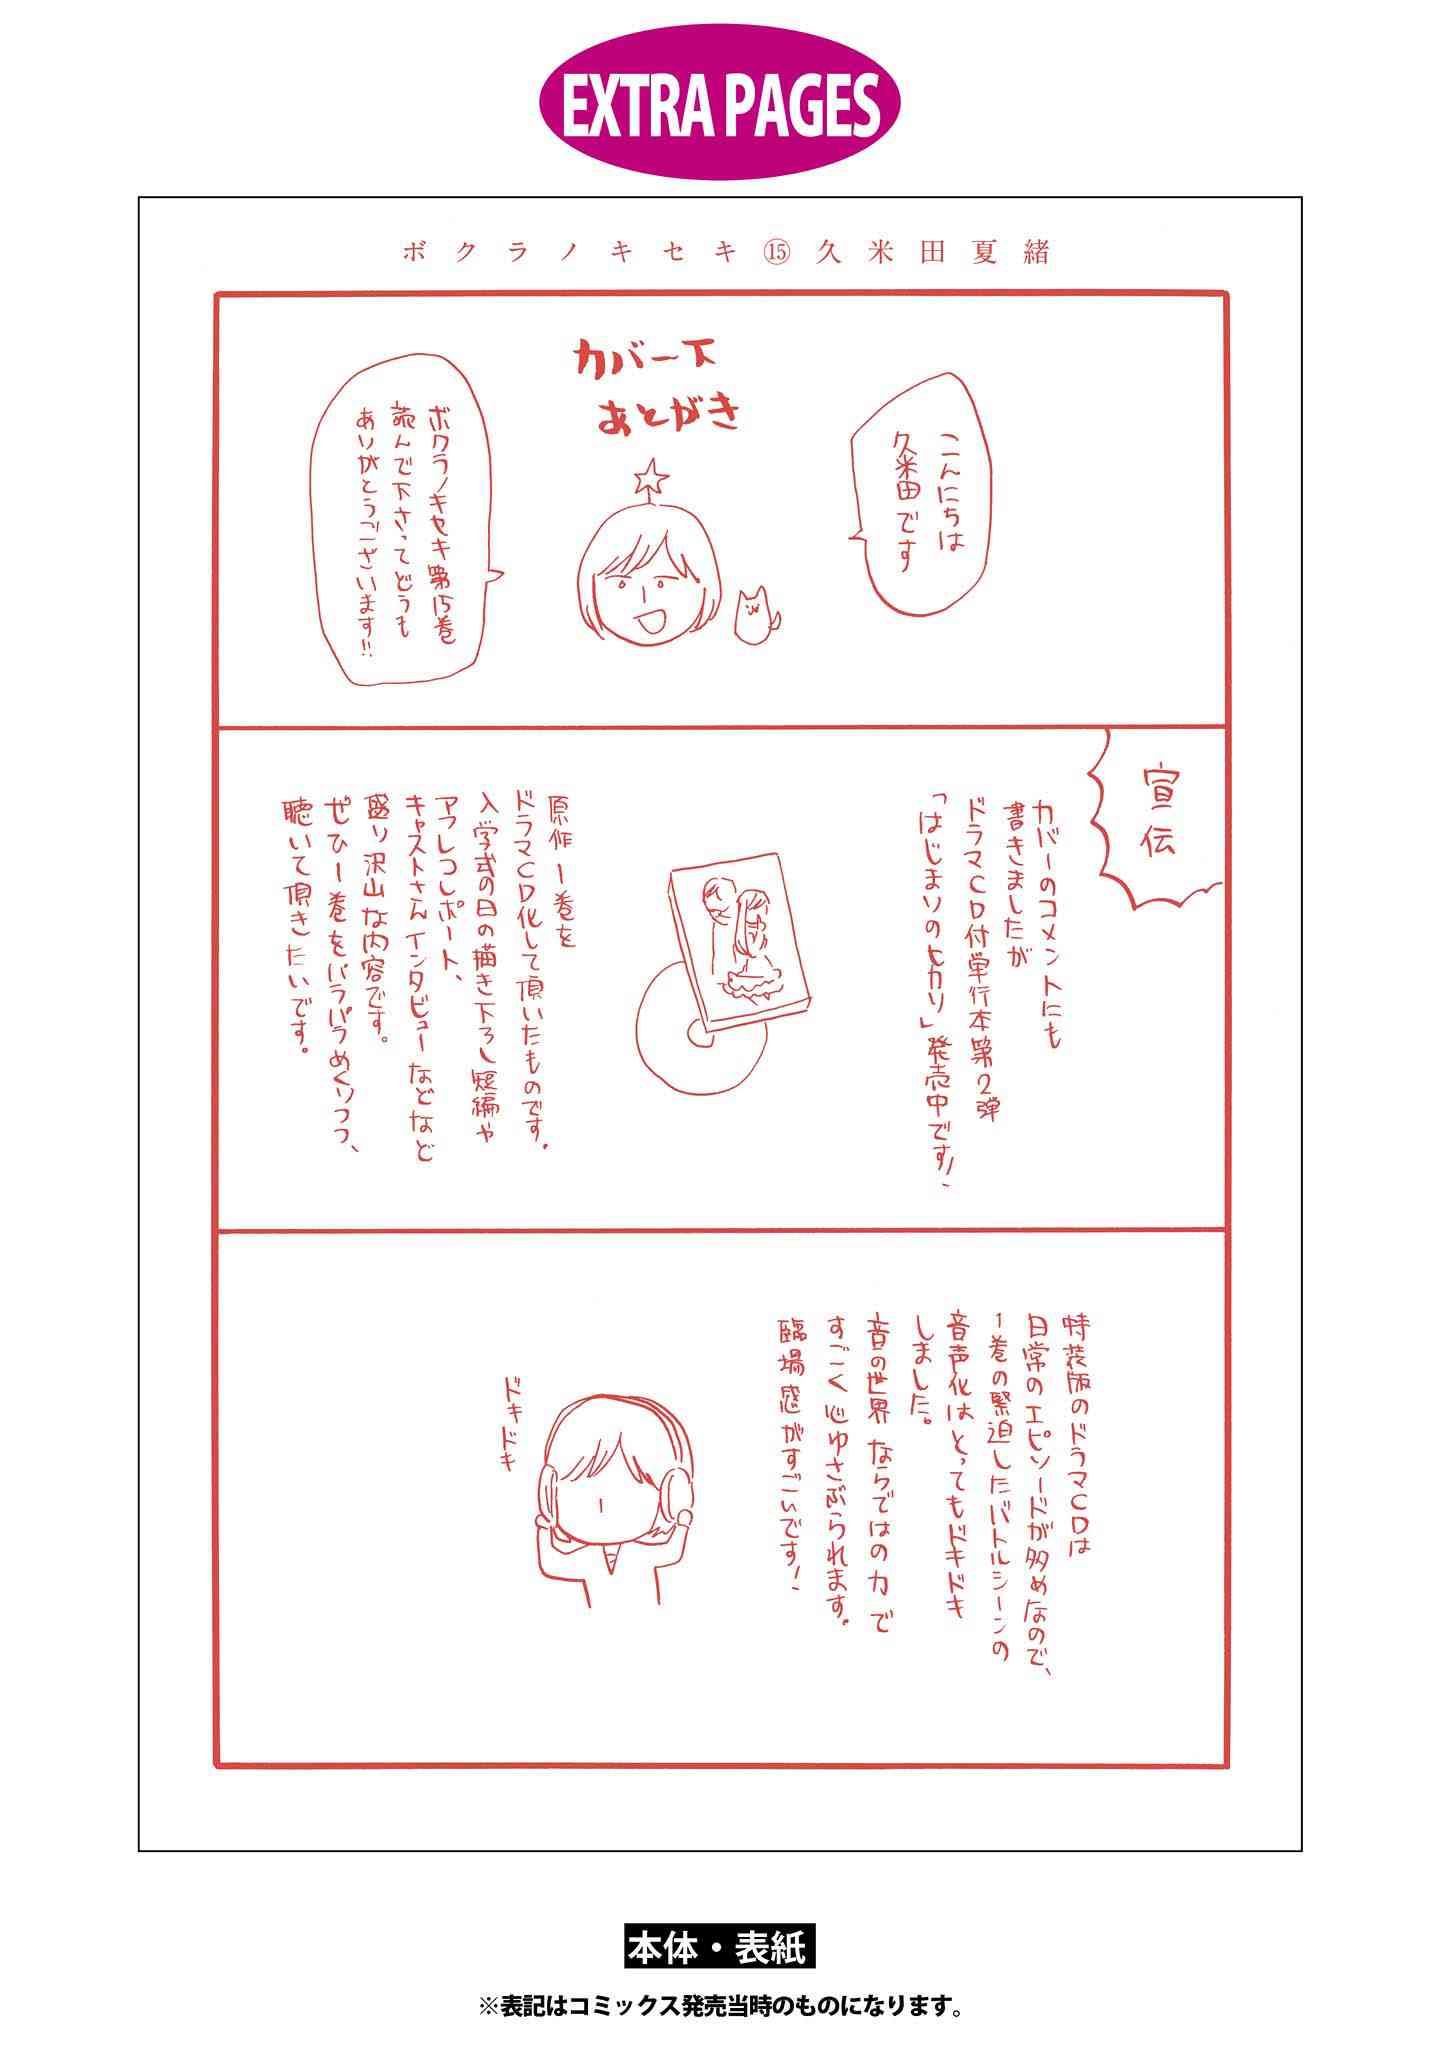 EXTRA PAGES
ボクラノキセキ⑮久米田夏緒
カバー下
あとがき
こんにちは
久米田です
ボクラノキセキ第15巻
読んで下さってどうも
ありがとうございます!!
宣伝
カバーのコメントにも
書きましたが
ドラマCD付単行本第2弾
「はじまりのヒカリ」発売中です!
原作1巻を
ドラマCD化して頂いたものです。
入学式の日の描き下ろし短編や
アフレコレポート、
キャストさんインタビューなどなど
盛り沢山な内容です。
ぜひ1巻をパラパラめくりつつ、
聴いて頂きたいです。
特装版のドラマCDは
日常のエピソードが多めなので、
1巻の緊迫したバトルシーンの
音声化はとってもドキドキ
しました。
音の世界ならではの力で
すごく心ゆさぶられます。
臨場感がすごいです!
ドキドキ
本体・表紙
※表記はコミックス発売当時のものになります。